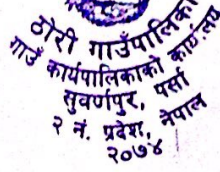 ठोरी गाउँपालिका
गाउँ कार्यपालिकाको कार्यालय
सुवर्णपुर, पर्सा
२ नं. प्रदेश, नेपाल
२०७४